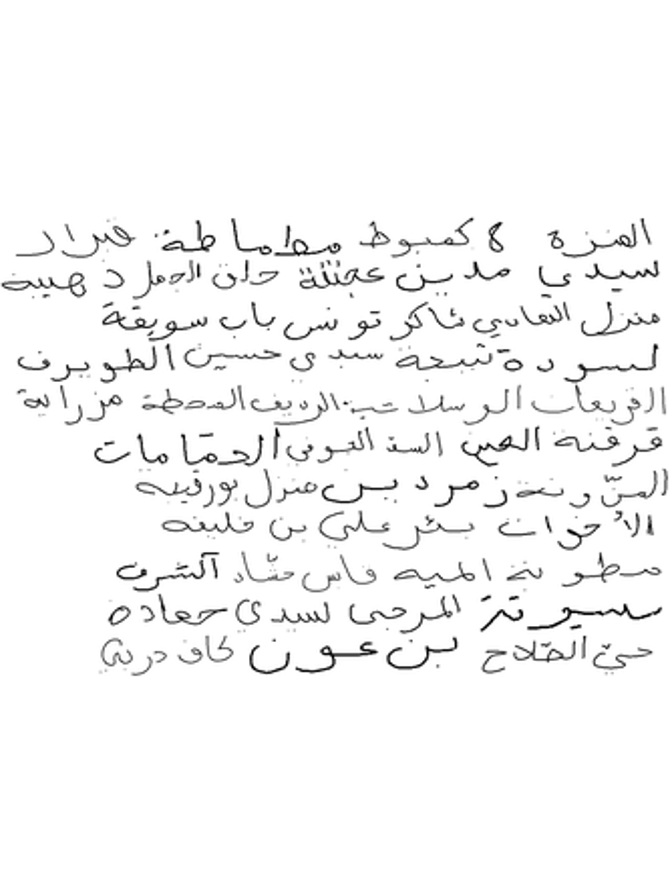 المنزه 8 كمبوط مطماطة
سيدي مدين عجنقة حلق الجمل ذهيبة
منزل الهادي شاكر تونس باب سويقة
لسودة سيدي حسين الطويرف
القريعات الوسلاتية الرديف المحطة مزراية
قرقنة العين السند الحمامات
زمردين منزل بورقيبة
الأخوات بئر علي بن خليفة
الميه فاس حشاد الشرف
المرجى لسيدي حمادة
حيّ الفلاح بن عون كاف دربي